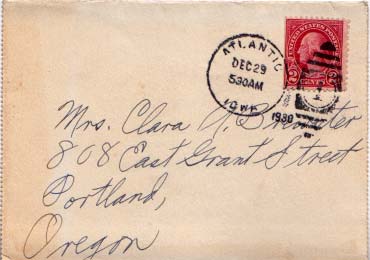 ATLANTIC
DEC 29
5 30 AM
IOWA
1930
UNITED STATES POSTAGE
Mrs. Clara A. Brewster
808 East Grant Street
Portland,
Oregon